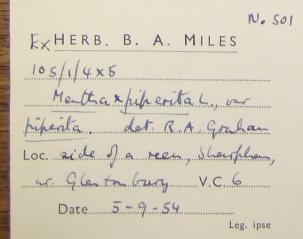 No. 501
Ex HERB. B. A. MILES
105/1/4x5
Mentha x piperita L., var
piperita. det. R. A. Graham
Loc. side of a reen, Sharpham,
nr. Glastonbury V.C. 6
Date 5-9-54
Leg. ipse